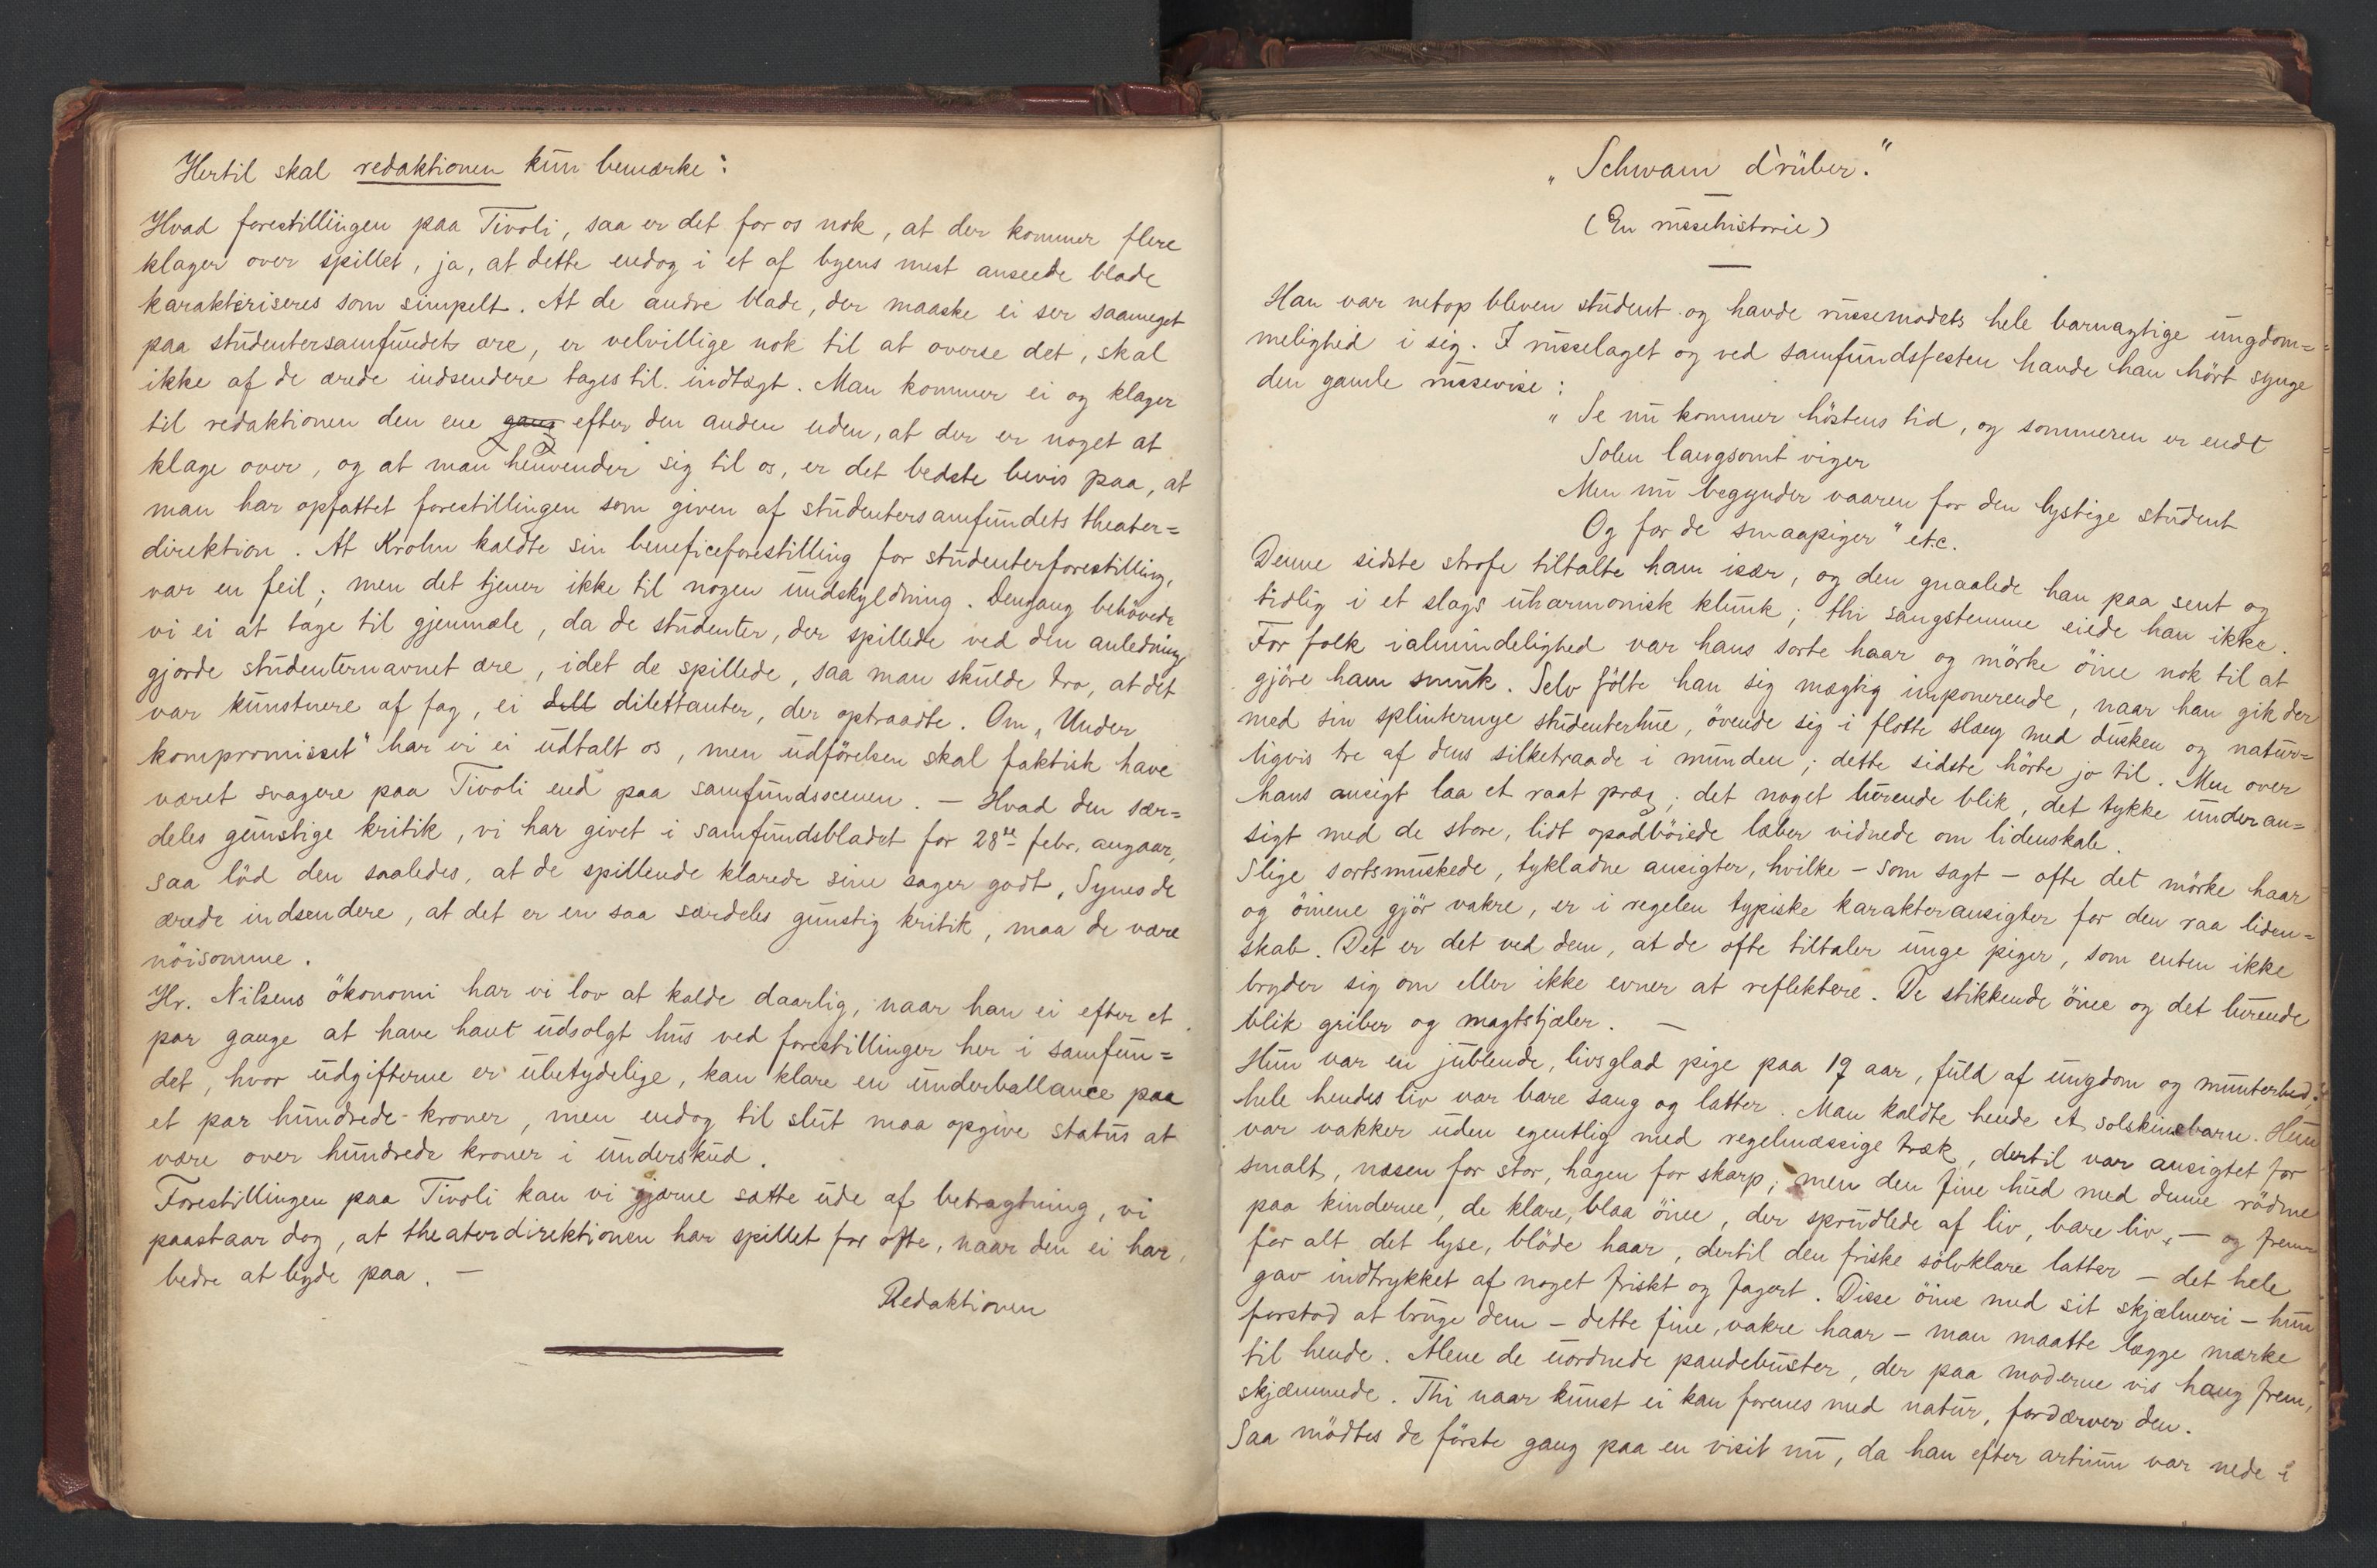 Hertil skal redaktionen kun bemærke:
Hvad forestillingen paa Tivoli, saa er det for os nok, at der kommer flere
klager over spillet, ja, at dette endog i et af byens mest anseede blade
karakteriseres som simpelt. At de andre blade, der maaske ei ser saameget
paa studentersamfundets ære, er velvillige nok til at overse det, skal
ikke af de ærede indsendere tages til indtægt. Man kommer ei og klager
til redaktionen den ene gang efter den anden uden, at der er noget at
klage over, og at man henvender sig til os, er det bedste bevis paa, at
man har opfattet forestillingen som given af studentersamfundets theater=
direktion. At Krohn kaldte sin beneficeforestilling for studenterforestilling,
var en feil; men det tjener ikke til nogen undskyldning. Dengang behövede
vi ei at tage til gjenmæle, da de studenter, der spillede ved den anledning
gjorde studenternavnet ære, idet de spillede, saa man skulde tro, at det
var kunstnere af fag, ei dell dilettanter, der optraadte. Om „Under
kompromisset" har vi ei udtalt os, men udförelsen skal faktisk have
været svagere paa Tivoli end paa samfundsscenen. — Hvad den sær=
deles gunstige kritik, vi har givet i samfundsbladet for 28de febr. angaar,
saa löd den saaledes, at de spillende klarede sine sager godt, Synes de
ærede indsendere, at det er en saa særdeles gunstig kritik, maa de være
nöisomme.
Hr. Nilsens ökonomi har vi lov at kalde daarlig, naar han ei efter et
par gange at have havt udsolgt hus ved forestillinger her i samfun=
det, hvor udgifterne er ubetydelige, kan klare en underballance paa
et par hundrede kroner, men endog til slut maa opgive status at
være over hundrede kroner i underskud.
Forestillingen paa Tivoli kan vi gjærne sætte ude af betragtning, vi
paastaar dog, at theaterdirektionen har spillet for ofte, naar den ei har
bedre at byde paa. —
Redaktionen
„Schwam d'rüber."
(En russehistorie)
Han var netop bleven student og havde russemodets hele barnagtige ungdom=
melighed i sig. I russelaget og ved samfundsfesten havde han hört synge
den gamle russevise:
"Se nu kommer höstens tid, og sommeren er endt
Solen langsomt viger
Men nu begynder vaaren for den lystige student
Og for de smaapiger" etc.
Denne sidste strofe tiltalte ham især, og den gnaalede han paa sent og
tidlig i et slags uharmonisk klunk; thi sangstemme eiede han ikke.
For folk ialmindelighed var hans sorte haar og mörke öine nok til at
gjöre ham smuk. Selv fölte han sig mægtig imponerende, naar han gik der
med sin splinternye studenterhue, övende sig i flotte slæng med dusken og natur=
ligvis tre af dens silketraade i munden; dette sidste hörte jo til. Men over
hans ansigt laa et raat præg; det noget lurende blik, det tykke underan=
sigt med de store, lidt opadböiede læber vidnede om lidenskab.
Slige sortsmuskede, tykladne ansigter, hvilke – som sagt – ofte det mörke haar
og öinene gjör vakre, er i regelen typiske karakteransigter for den raa liden=
skab. Det er det ved dem, at de ofte tiltaler unge piger, som enten ikke
bryder sig om eller ikke evner at reflektere. De stikkende öine og det lurende
blik griber og magtstjæler. —
Hun var en jublende, livsglad pige paa 17 aar, fuld af ungdom og munterhed;
hele hendes liv var bare sang og latter. Man kaldte hende et solskinsbarn. Hun
var vakker uden egentlig med regelmæssige træk, dertil var ansigtet for
smalt, næsen for stor, hagen for skarp; men den fine hud med denne rödme
paa kinderne, de klare, blaa öine, der sprudlede af liv, bare liv, — og frem
for alt det lyse, blöde haar, dertil den friske sölvklare latter – det hele
gav indtrykket af noget friskt og fagert. Disse öine med sit skjælmeri – hun
forstod at bruge dem – dette fine, vakre haar – man maatte lægge mærke
til hende. Alene de uordnede pandebuster, der paa moderne vis hang frem,
skjæmmede. Thi naar kunst ei kan forenes med natur, fordærver den.
Saa mödtes de förste gang paa en visit nu, da han efter artium var nede i